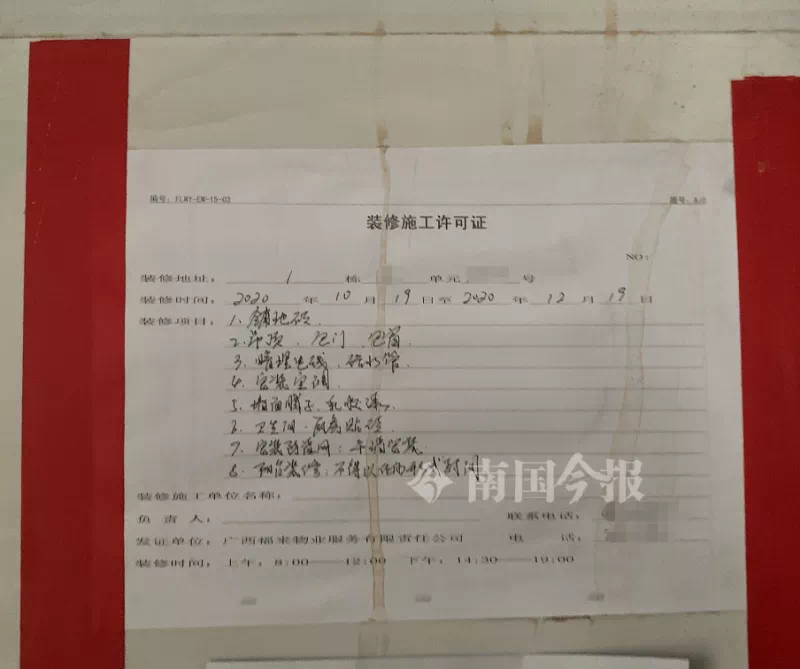 编号：FLWY-EW-15-03 版号：A/0
装修施工许可证
NO：
装修地址： 1 栋 单元 号
装修时间：2020 年 10 月 19 日至 2020 年 12 月 19 日
装修项目：1、铺地砖、
2、吊顶、包门、包窗
3、暗埋电线、给水管
4、安装空调、
5、墙面腻子、乳胶漆、
6、卫生间、厨房贴砖
7、安装防盗网：平墙安装
8、阳台装修：不得以任何形式封闭
南国今报
装修施工单位名称：
负责人： 联系电话：
发证单位：广西福来物业服务有限责任公司 电话：
装修时间：上午：8:00——12:00 下午：14:30——19:00